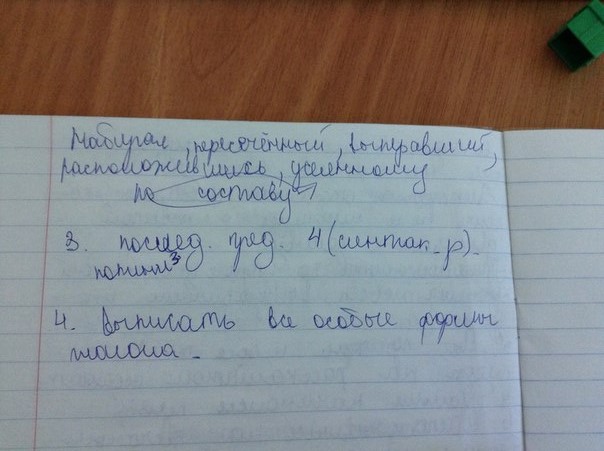 Набирал, пересечённый, вытравший,
расположившись, усеянному
по составу
3. послед. пред. 4 (синтак. р).
4. Выписать все особые формы
глагола.